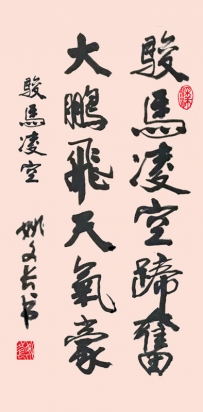 駿馬凌空蹄奮
大鵬飛天氣豪
駿馬凌空
姚文長书